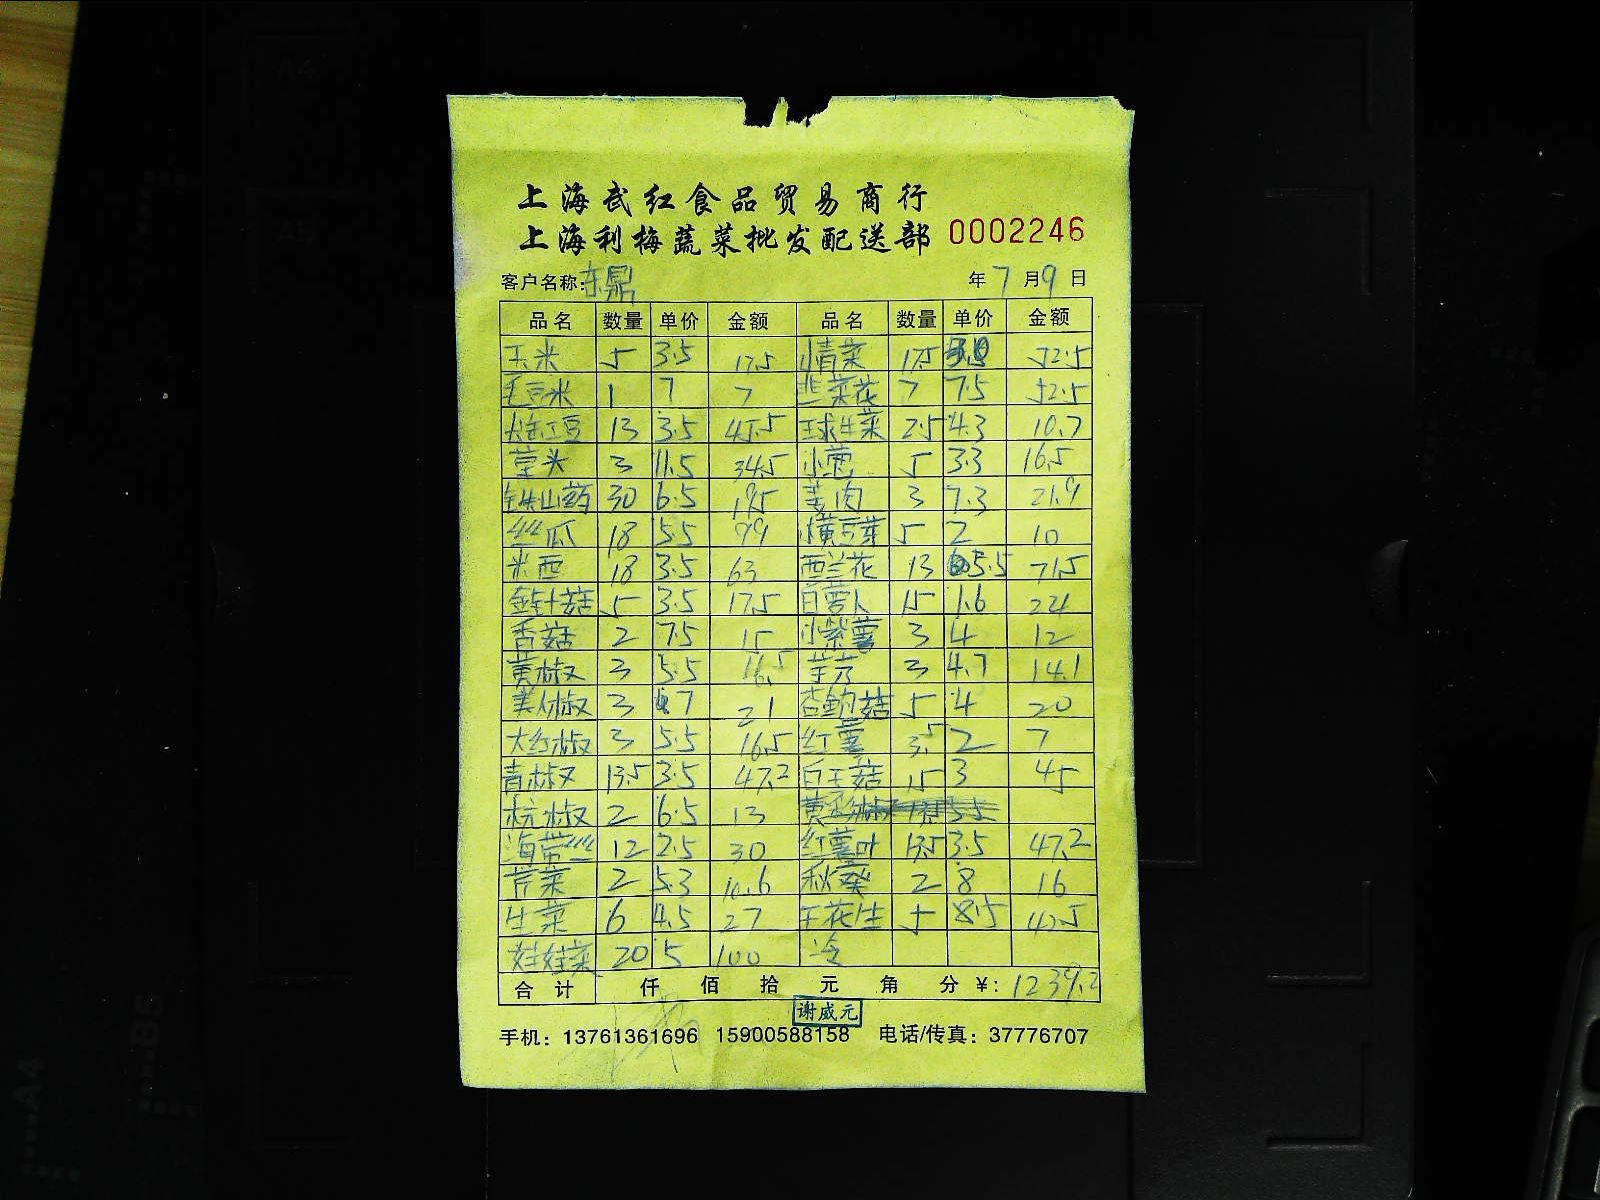 上海武红食品贸易商行
上海利梅蔬菜批发配送部 0002246
客户名称:东鼎 年7月9日
品名 数量 单价 金额 品名 数量 单价 金额
玉米 5 3.5 17.5 菜 17.5 52.5
毛豆米 1 7 7 韭菜花 7 7.5 52.5
红豆 13 3.5 45.5 球生菜 2.5 4.3 10.7
草头 3 11.5 34.5 小葱 5 3.3 16.5
铁山药 30 6.5 195 姜肉 3 7.3 21.9
丝瓜 18 5.5 99 豆芽 5 2 10
米西 18 3.5 63 西兰花 13 5.5 71.5
金针菇 5 3.5 17.5 白萝卜 15 1.6 24
香菇 2 7.5 15 小紫薯 3 4 12
黄椒 3 5.5 16.5 芋艿 3 4.7 14.1
美人椒 3 7 21 杏鲍菇 5 4 20
大红椒 3 5.5 16.5 红薯 3.5 2 7
青椒 13.5 3.5 47.2 白玉菇 15 3 45
杭椒 2 6.5 13
海带丝 12 2.5 30 红薯叶 13.5 3.5 47.2
芹菜 2 5.3 10.6 秋葵 2 8 16
生菜 6 4.5 27 花生 5 8.5 42.5
娃娃菜 20 5 100
合计 仟 佰 拾 元 角 分 ¥: 1239.2
谢威元
手机: 13761361696 15900588158 电话/传真: 37776707